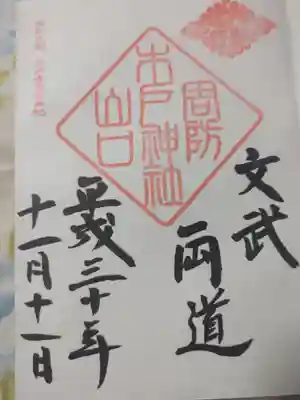 文武両道
周防
木戸神社
山口
平成三十年
十一月十一日